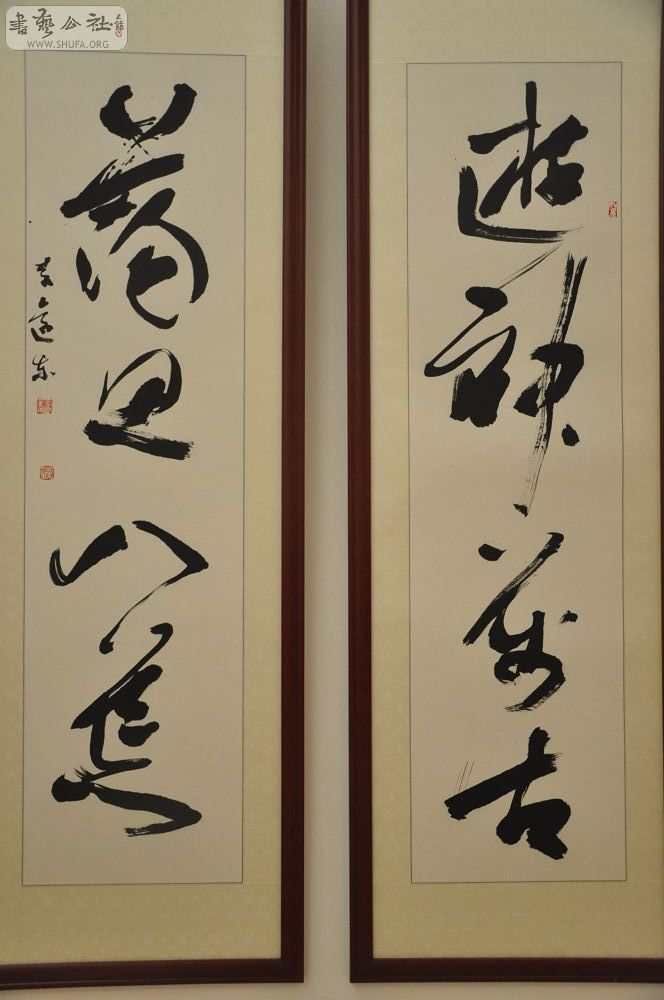 書藝公社
WWW.SHUFA.ORG
遊神萬古
蕩思八荒
李遠東